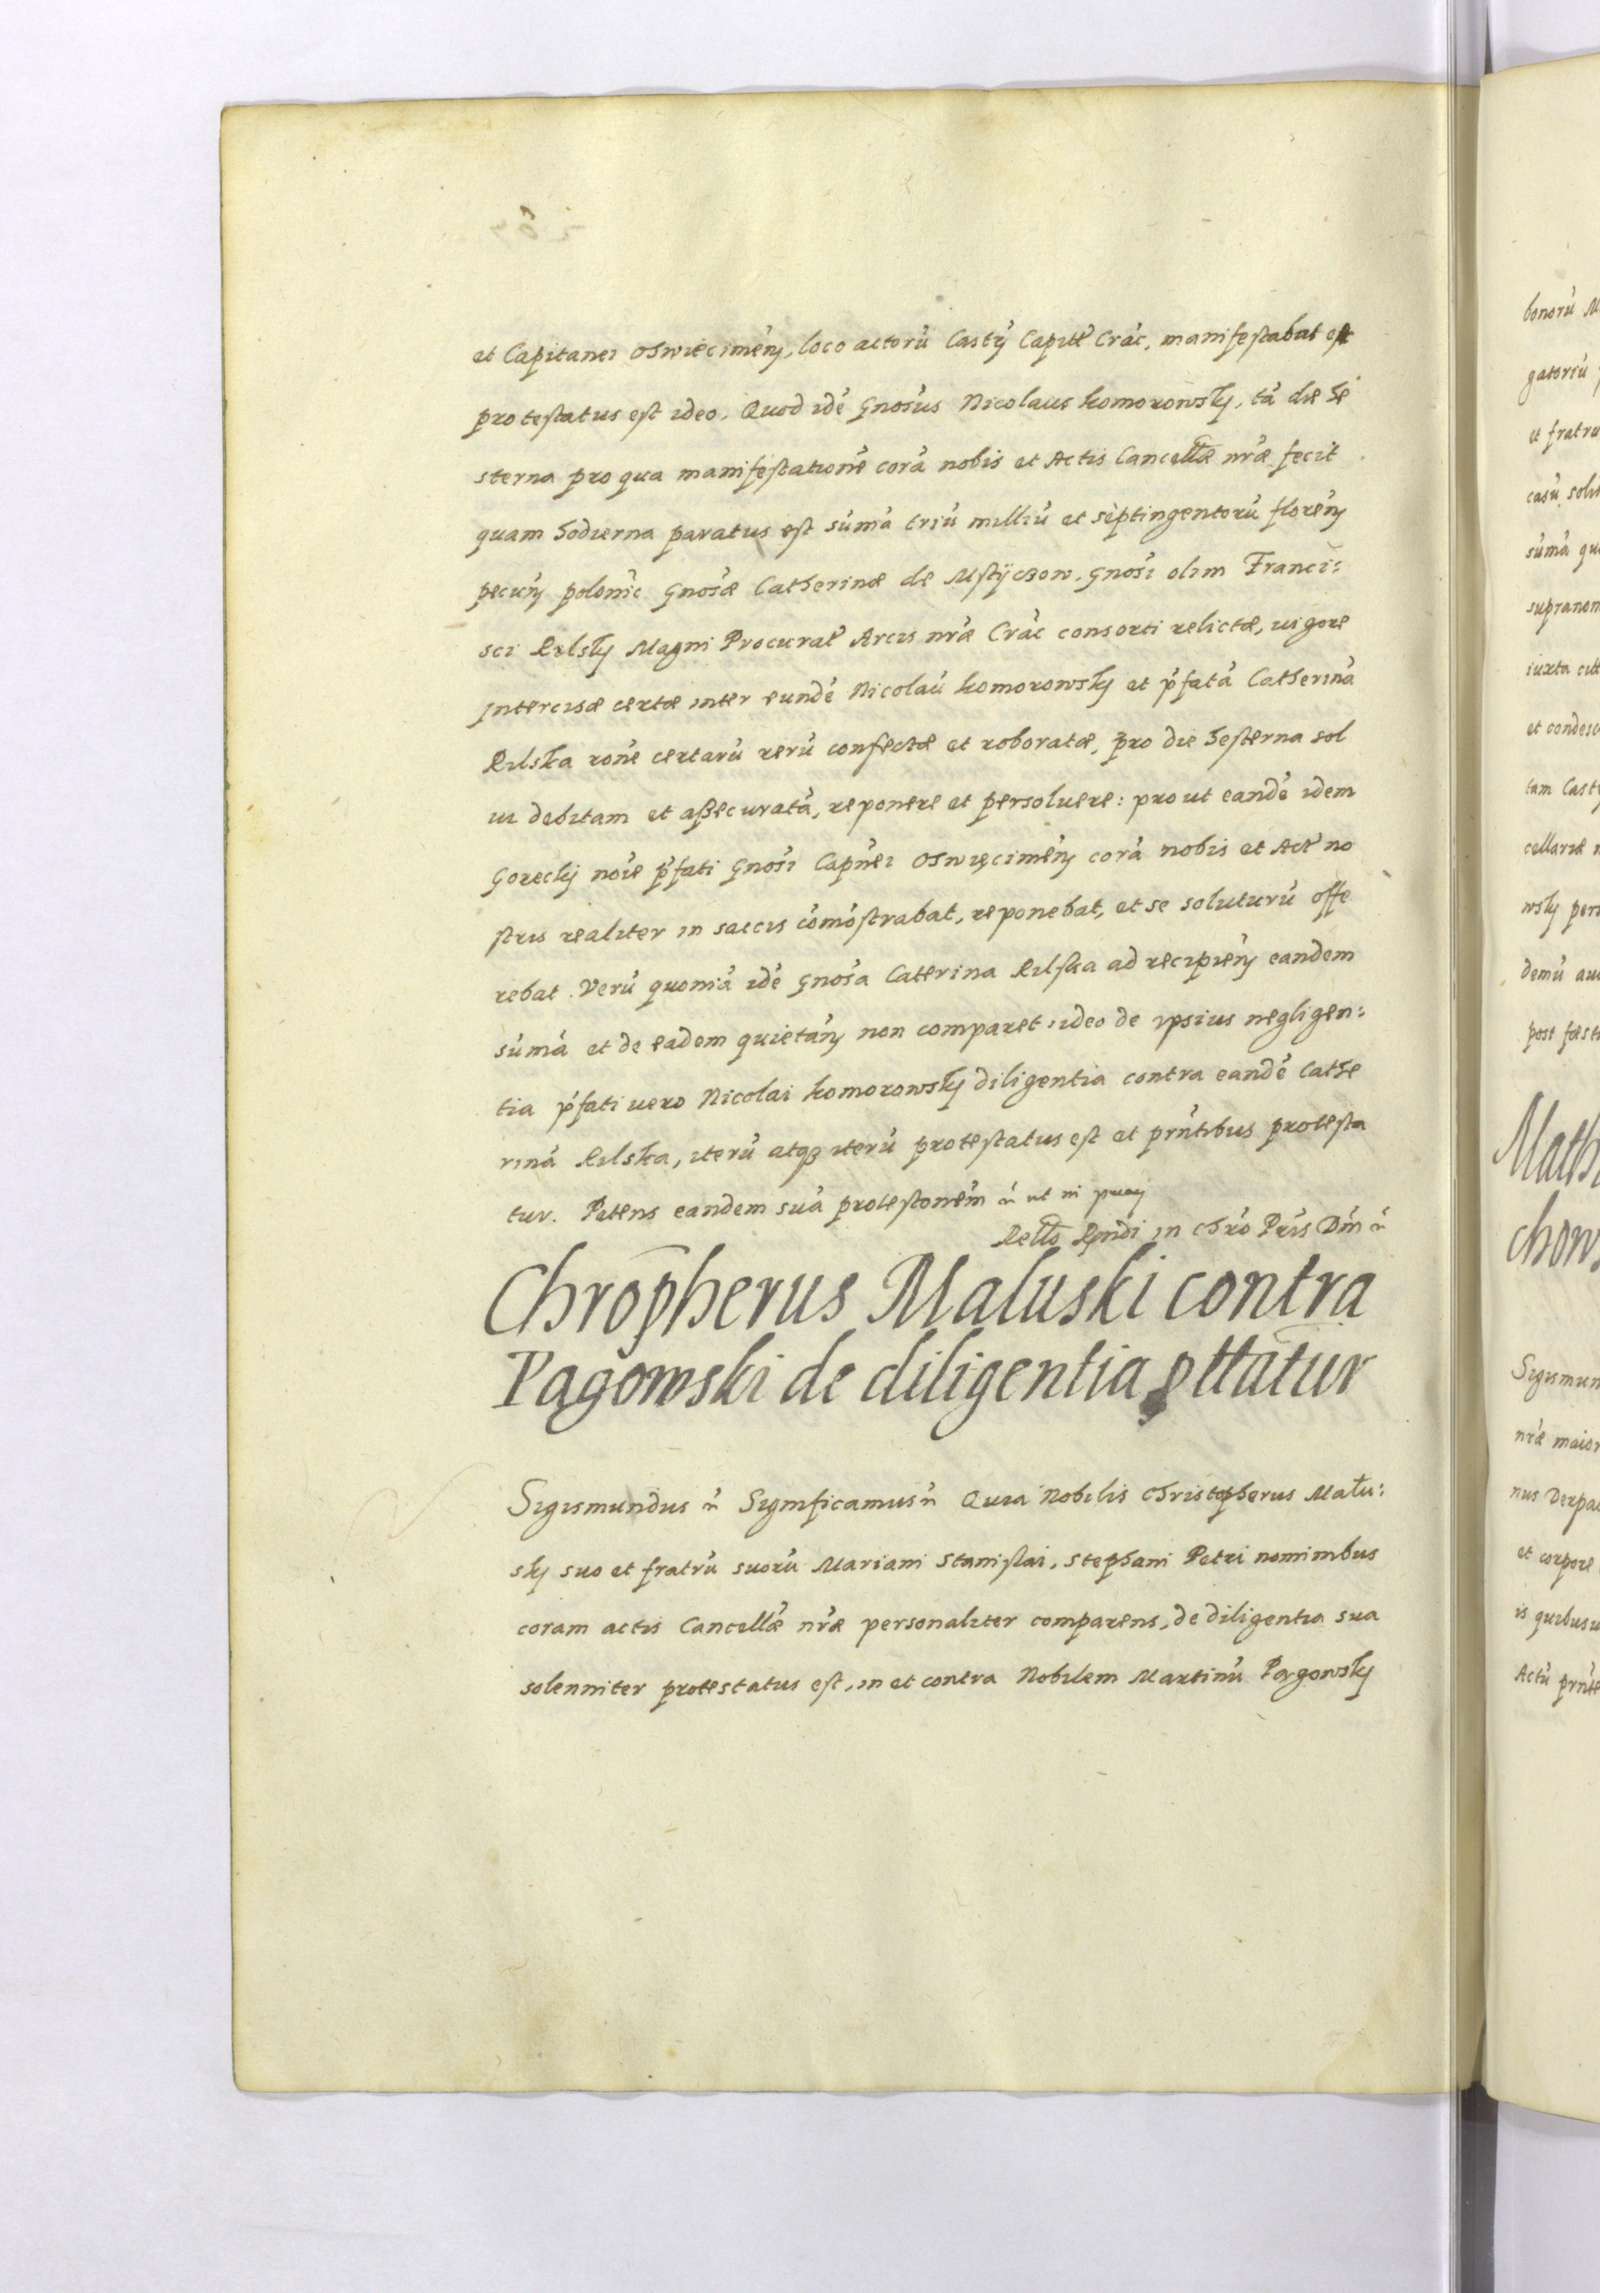 et Capitanei Oswiecimeñ, loco actorú Castŕ Capitł Crác, manifestabat et
protestatus est ideo. Quod idé Gnosús Nicolaus Komorowsky, tá die he
sterna pro qua manifestationé corá nobis et Actis Cancellæ nræ fecit
quam hodierna paratus est súmá triú milliú et septingentorú floreñ
pecuñ polonic Gnosæ Catherinæ de Mstÿczow. Gnosi olim Franci:
sci Rilsky Magni Procurat Arcis nræ Crác consorti relictæ, uigore
Intercisæ certæ inter eundé Nicolaú Komorowsky et pfatá Catheriná
Rilska roné certarú rerú confectæ et roboratæ, pro die hesterna sol
ui debitam et aßecuratá, reponere et persoluere: prout eandé idem
Gorecky noíe pfati Gnosi Capnei Oswięcimeñ corá nobis et Act no
stris realiter in saccis comóstrabat, reponebat, et se soluturú offe
rebat. Verú quoniá idé Gnosa Caterina Rilska ad recipieñ eandem
súmá et de eadem quietañ non comparet, ideo de ipsius negligen:
tia pfati uero Nicolai Komorowsky diligentia contra eandé Cathe
riná Rilska, iterú atq iterú protestatus est et prntibus protesta
tur. Petens eandem suá protestonem ut in
Relto Rndi in Chro Pris Dni
Chropherus Maluski contra
Pągowski de diligentia pttatur
Sigismundus Significamus Quia Nobilis Christopherus Mału:
sky suo et fratrú suorú Mariani Stanislai, Stephani Petri nominibus
coram actis Cancellæ nræ personaliter comparens, de diligentia sua
solenniter protestatus est, in et contra Nobilem Martinú Pągowsky
bonorú
gatoriú
et fratru
casú
súmá
iuxta
tam
demú
post
Math
chow
Sigismun
nræ maior
et corpore
is quibus
Actú